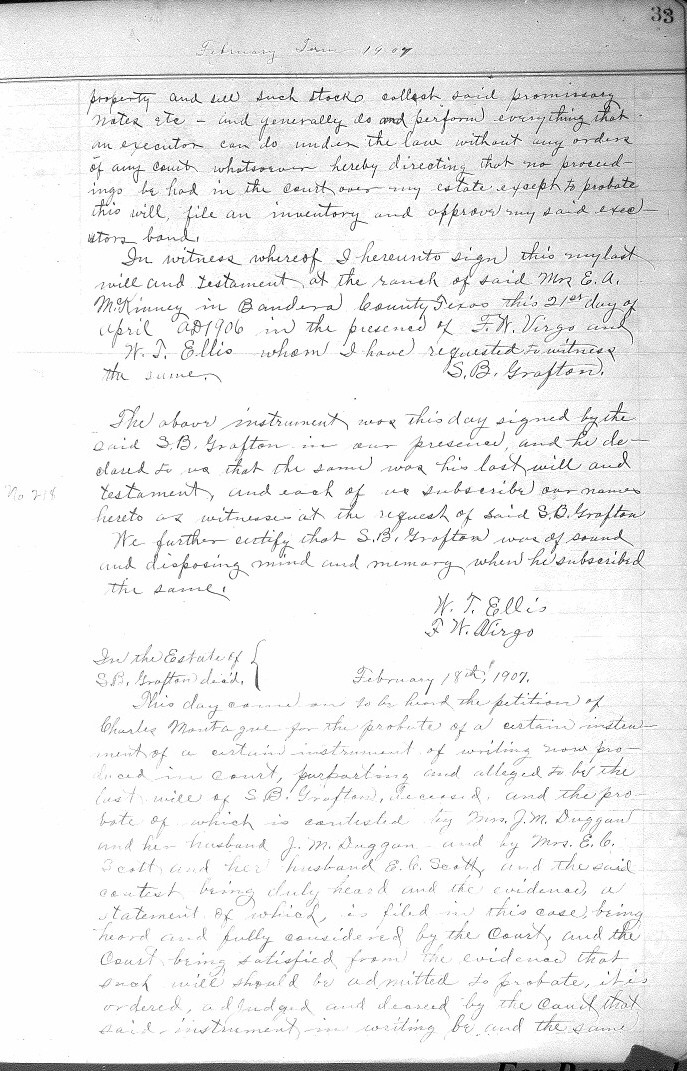 33
February Term 1907
property and sell such stocks collect said promissory
notes etc - and generally do and perform everything that
an executor can do under the law without any orders
of any court whatsoever hereby directing that no proceed-
ings be had in the court over my estate except to probate
this will, file an inventory and approve my said exec-
utors bond.
In witness whereof I hereunto sign this my last
will and testament at the ranch of said Mrs E. A.
McKinney in Bandera County Texas this 21st day of
April AD 1906 in the presence of F. W. Virgo and
W. T. Ellis whom I have requested to witness
the same.
S. B. Grafton.
The above instrument was this day signed by the
said S. B. Grafton in our presence, and he de-
clared to us that the same was his last will and
No 218
testament, and each of us subscribe our names
hereto as witnesses at the request of said S. B. Grafton
We further certify that S. B. Grafton was of sound
and disposing mind and memory when he subscribed
the same.
W. T. Ellis
F W. Virgo
In the Estate of
S. B. Grafton decd. February 18th, 1907.
This day came on to be heard the petition of
Charles Montague for the probate of a certain instru-
ment of a certain instrument of writing now pro-
duced in court, purporting and alleged to be the
last will of S. B. Grafton, deceased, and the pro-
bate of which is contested by Mrs. J. M. Duggan
and her husband J. M. Duggan and by Mrs. E. C.
Scott and her husband E. C. Scott, and the said
contest being duly heard and the evidence, a
statement of which, is filed in this case, being
heard and fully considered by the Court, and the
Court being satisfied from the evidence that
such will should be admitted to probate, it is
ordered, adjudged and decreed by the Court that
said instrument in writing be and the same